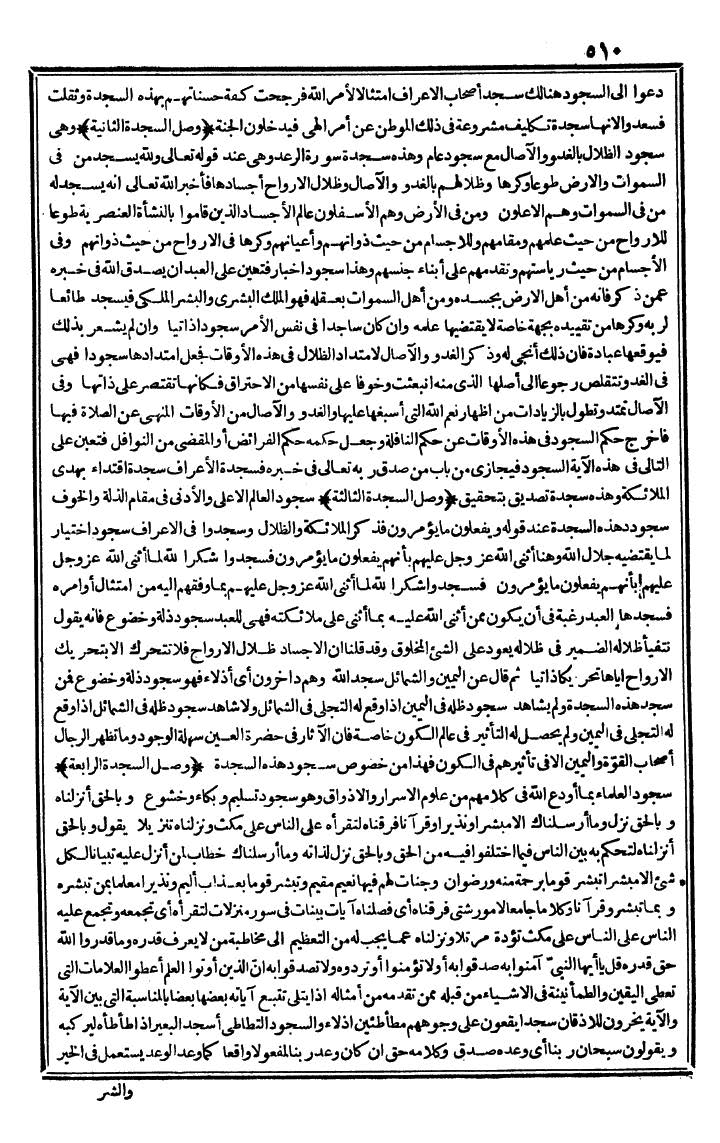 ٥١٠
دعوا الى السجود هنالك سجد أصحاب الاعراف امتثالا لأمر الله فرجحت كفة حسناتهم بهذه السجدة وثقلت
فسعدوا لانها سجدة تكليف مشروعة فى ذلك الموطن عن أمر الهى فيدخلون الجنة ﴿وصل السجدة الثانية﴾ وهى
سجود الظلال بالغدو والآصال مع سجود عام وهذه سجدة سورة الرعد وهى عند قوله تعالى ولله يسجد من فى
السموات والارض طوعا وكرها وظلالهم بالغدو والآصال وظلال الارواح أجسادها فأخبر الله تعالى انه يسجد له
من فى السموات وهم الاعلون ومن فى الأرض وهم الأسفلون عالم الأجساد الذين قاموا بالنشأة العنصرية طوعا
للارواح من حيث علمهم ومقامهم وللاجسام من حيث ذواتهم وأعيانهم وكرها فى الارواح من حيث ذواتهم وفى
الأجسام من حيث رياستهم وتقدمهم على أبناء جنسهم وهذا سجود اخبار فتعين على العبد ان يصدق الله فى خبره
عمن ذكر فانه من أهل الارض بجسده ومن أهل السموات بعقله فهو الملك البشرى والبشر الملكى فيسجد طائعا
لربه وكرها من تقييده بجهة خاصة لا يقتضيها علمه وان كان ساجدا فى نفس الأمر سجودا ذاتيا وان لم يشعر بذلك
فيوقعها عبادة فان ذلك أنجى له وذكر الغدو والآصال لامتداد الظلال فى هذه الأوقات فجعل امتدادها سجودا فهى
فى الغدو تتقلص رجوعا الى أصلها الذى منه انبعثت وخوفا على نفسها من الاحتراق فكأنها تقتصر على ذاتها وفى
الآصال تمتد وتطول بالزيادات من اظهار نعم الله التى أسبغها عليها والغدو والآصال من الأوقات المنهى عن الصلاة فيها
فاخرج حكم السجود فى هذه الأوقات عن حكم النافلة وجعل حكمه حكم الفرائض أو المقضى من النوافل فتعين على
التالى فى هذه الآية السجود فيجازى من باب من صدق ربه تعالى فى خبره فسجدة الأعراف سجدة اقتداء بهدى
الملائكة وهذه سجدة تصديق بتحقيق ﴿وصل السجدة الثالثة﴾ سجود العالم الاعلى والأدنى فى مقام الذلة والخوف
سجود هذه السجدة عند قوله ويفعلون ما يؤمرون فذكر الملائكة والظلال وسجدوا فى الاعراف سجود اختيار
لما يقتضيه جلال الله وهنا أثنى الله عز وجل عليهم بأنهم يفعلون ما يؤمرون فسجدوا شكرا لله لما أثنى الله عز وجل
عليهم بأنهم يفعلون ما يؤمرون فسجدوا شكرا لله لما أثنى الله عز وجل عليهم بما وفقهم اليه من امتثال أوامره
فسجدها العبد رغبة فى أن يكون ممن أثنى الله عليه بما أثنى على ملائكته فهى للعبد سجود ذلة وخضوع فانه يقول
تتفيأ ظلاله الضمير فى ظلاله يعود على الشئ المخلوق وقد قلنا ان الاجساد ظلال الارواح فلا تتحرك الا بتحريك
الارواح اياها تحريكا ذاتيا ثم قال عن اليمين والشمائل سجدا لله وهم داخرون أى أذلاء فهو سجود ذلة وخضوع فمن
سجد هذه السجدة ولم يشاهد سجود ظله فى اليمين اذا وقع له التجلى فى الشمائل ولا شاهد سجود ظله فى الشمائل اذا وقع
له التجلى فى اليمين ولم يحصل له التأثير فى عالم الكون خاصة فان الآثار فى حضرة العين سهلة الوجود وما تظهر الرجال
أصحاب القوة واليمين الا فى تأثيرهم فى الكون فهذا من خصوص سجود هذه السجدة ﴿وصل السجدة الرابعة﴾
سجود العلماء بما أودع الله فى كلامهم من علوم الاسرار والاذواق وهو سجود تسليم وبكاء وخشوع وبالحق أنزلناه
وبالحق نزل وما أرسلناك الا مبشرا ونذيرا وقرآنا فرقناه لتقرأه على الناس على مكث ونزلناه تنزيلا يقول وبالحق
أنزلناه لتحكم به بين الناس فيما اختلفوا فيه من الحق وبالحق نزل لذاته وما أرسلناك خطاب لمن أنزل عليه تبيانا لكل
شئ الا مبشرا تبشر قوما برحمة منه ورضوان وجنات لهم فيها نعيم مقيم وتبشر قوما بعذاب أليم ونذيرا معلما بمن تبشره
وبما تبشر وقرآنا وكلاما جامعا لامور شتى فرقناه أى فصلناه آيات بينات فى سور منزلات لتقرأه أى تجمعه وتجمع عليه
الناس على الناس على مكث تؤدة مرتلا ونزلناه عما يجب له من التعظيم الى مخاطبة من لا يعرف قدره وما قدروا الله
حق قدره قل يا أيها النبى آمنوا به صدقوا به أولا تؤمنوا أو تردوه ولا تصدقوا به ان الذين أوتوا العلم أعطوا العلامات التى
تعطى اليقين والطمأنينة فى الاشياء من قبله ممن تقدمه من أمثاله اذا يتلى تتبع آياته بعضها بعضا بالمناسبة التى بين الآية
والآية يخرون للاذقان سجدا يقعون على وجوههم مطأطئين اذلاء والسجود التطاطى أسجد البعير اذا طأطأه ليركبه
ويقولون سبحان ربنا أى وعده صدق وكلامه حق ان كان وعد ربنا لمفعولا واقعا كما وعد الوعد يستعمل فى الخير
والشر